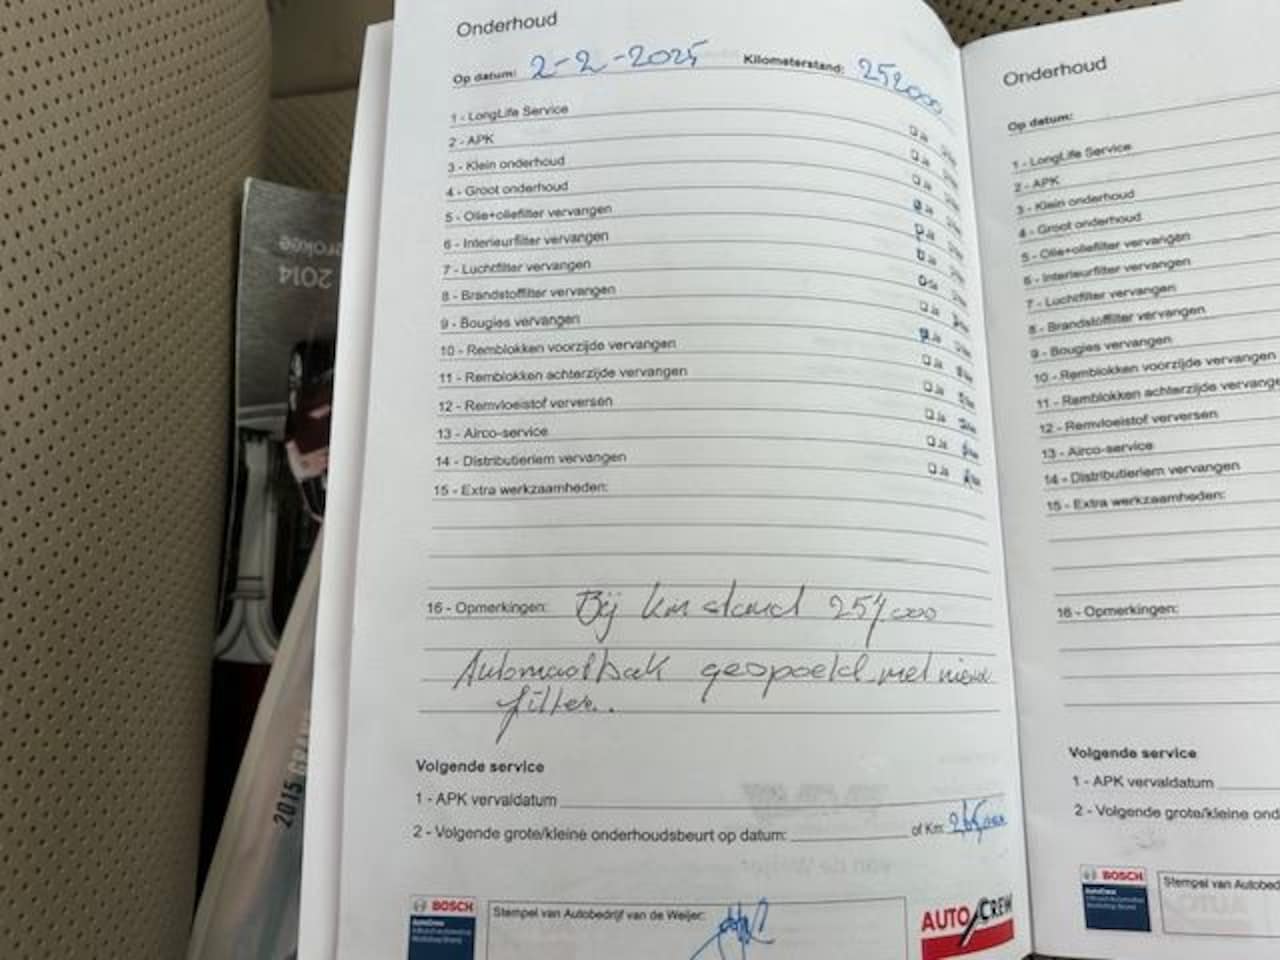 Onderhoud
Op datum: 2-2-2025 Kilometerstand: 252000
1 - LongLife Service
2 - APK
3 - Klein onderhoud
4 - Groot onderhoud
5 - Olie+oliefilter vervangen
6 - Interieurfilter vervangen
7 - Luchtfilter vervangen
8 - Brandstoffilter vervangen
9 - Bougies vervangen
10 - Remblokken voorzijde vervangen
11 - Remblokken achterzijde vervangen
12 - Remvloeistof verversen
13 - Airco-service
14 - Distributieriem vervangen
15 - Extra werkzaamheden:
Ja
Ja
Ja
Ja
Ja
Ja
Ja
Ja
Ja
Ja
Ja
Ja
Ja
16 - Opmerkingen: Bij km stand 254,000
Automaatbak gespoeld met nieuw
filter.
Volgende service
1 - APK vervaldatum
2 - Volgende grote/kleine onderhoudsbeurt op datum: of Km:
BOSCH
AutoCrew
Stempel van Autobedrijf van de Weijer:
AUTO CREW
Onderhoud
Op datum:
1 - LongLife Service
2 - APK
3 - Klein onderhoud
4 - Groot onderhoud
5 - Olie+oliefilter vervangen
6 - Interieurfilter vervangen
7 - Luchtfilter vervangen
8 - Brandstoffilter vervangen
9 - Bougies vervangen
10 - Remblokken voorzijde vervangen
11 - Remblokken achterzijde vervange
12 - Remvloeistof verversen
13 - Airco-service
14 - Distributieriem vervangen
15 - Extra werkzaamheden:
16 - Opmerkingen:
Volgende service
1 - APK vervaldatum
2 - Volgende grote/kleine ond
BOSCH
AutoCrew
Stempel van Autobed
rokee
2014
2015 GRAN